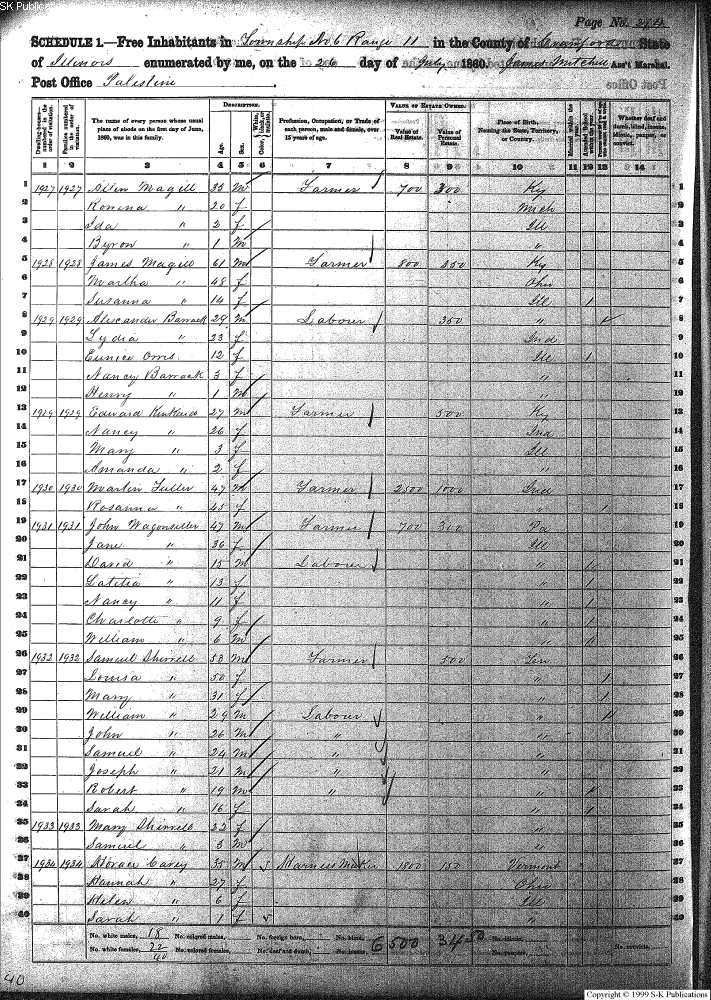 SK Publications
Page No.
SCHEDULE 1.—Free Inhabitants in Township No 6 Range 11 in the County of Crawford State
of Illinois enumerated by me, on the 26 day of July 1860. James Mitchell Ass't Marshal.
Post Office Palestine
DESCRIPTION. VALUE OF ESTATE OWNED.
Dwelling-houses—numbered in the order of visitation. Families numbered in the order of visitation. The name of every person whose usual place of abode on the first day of June, 1860, was in this family. Age. Sex. Color, Profession, Occupation, or Trade of each person, male and female, over 15 years of age. Value of Real Estate. Value of Personal Estate. Place of Birth, Naming the State, Territory, or Country. Married within the Attended School Whether deaf and dumb, blind, insane, idiotic, pauper, or convict.
1 2 3 4 5 6 7 8 9 10 11 12 13 14
1 1927 1927 Magill 35 m Farmer 700 300 Ky 1
2 Rowena " 20 f Mich 2
3 Ida " 2 f Ill 3
4 Byron " 1 m " 4
5 1928 1928 James Magill 61 m Farmer 800 350 Ky 5
6 Martha " 48 f Ohio 6
7 Susanna " 14 f Ill 1 7
8 1929 1929 Alexander Barrack 29 m Labourer 350 " 8
9 Lydia " 23 f Ind 9
10 Eunice Orris 12 f Ill 1 10
11 Nancy Barrack 3 f " 11
12 Henry " 1 m " 12
13 1929 1929 Edward Kinkerd 27 m Farmer 500 Ky 13
14 Nancy " 26 f Ind 14
15 Mary " 3 f Ill 15
16 Amanda " 2 f " 16
17 1930 1930 Martin Fuller 47 m Farmer 2500 1000 Ind 17
18 Rosanna " 45 f " 1 18
19 1931 1931 John Wagonseller 47 m Farmer 700 300 Pa 19
20 Jane " 36 f Ill 20
21 David " 15 m Labourer " 1 21
22 Latitia " 13 f " 1 22
23 Nancy " 11 f " 1 23
24 Charlotte " 9 f " 1 24
25 William " 6 m " 1 25
26 1932 1932 Samuel Shirrell 53 m Farmer 500 Ten 26
27 Louisa " 50 f " 1 27
28 Mary " 31 f " 1 28
29 William " 29 m Labour " 29
30 John " 26 m " " 30
31 Samuel " 24 m " " 31
32 Joseph " 21 m " " 32
33 Robert " 19 m " " 33
34 Sarah " 16 f " 1 34
35 1933 1933 Mary Shirrell 32 f " 35
36 Samuel " 3 m " 36
37 1934 1934 Horace Carey 35 m Harness Maker 1800 150 Vermont 37
38 Hannah " 27 f Ohio 38
39 Helen " 6 f Ill 39
40 Sarah " 1 f " 40
No. white males, 18 No. colored males, No. foreign born, No. blind, 6500 3450 No. idiotic,
No. white females, 22 No. colored females, No. deaf and dumb, No. insane, No. paupers, No. convicts,
40
40
Copyright © 1999 S-K Publications